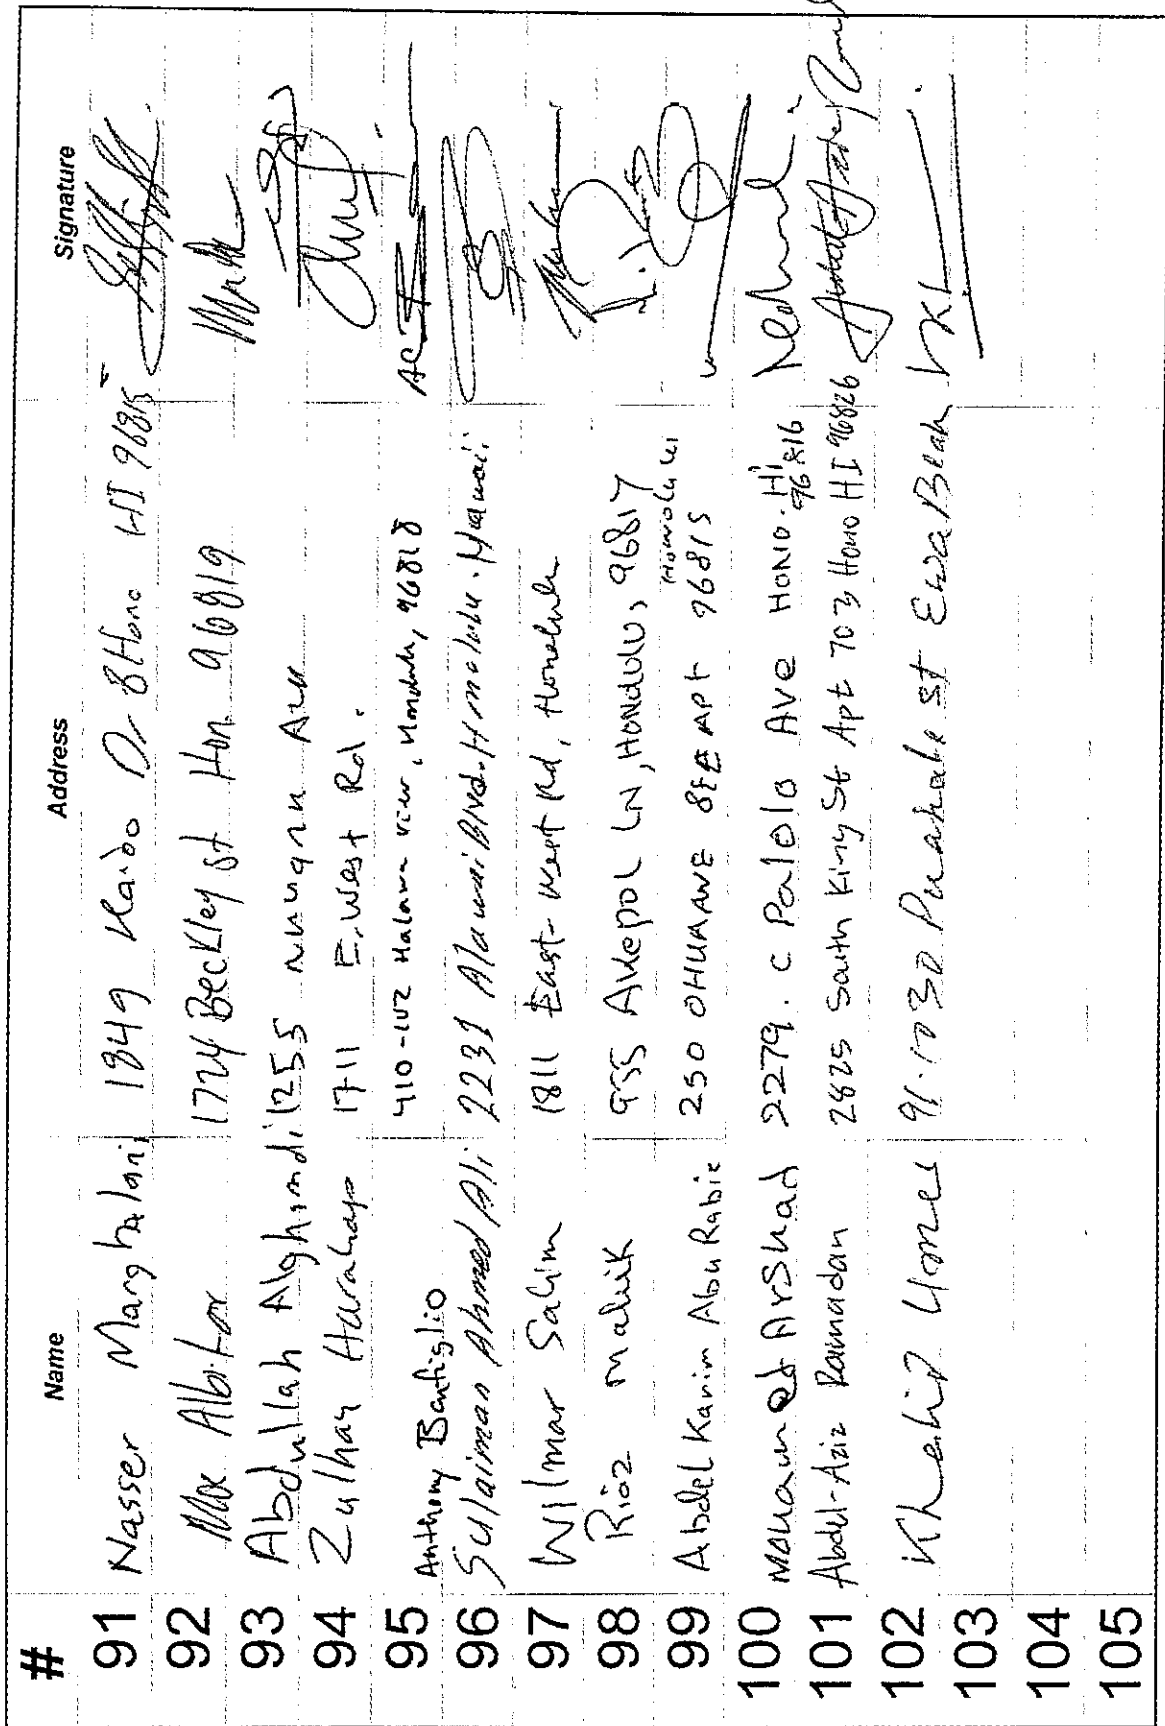 # Name Address Signature
91 Nasser Marghalani 1849 Kaioo Dr 8 Hono HI 96815
92 Albitar 1724 Beckley st Hon 96819
93 Abdullah Alghamdi 1255 nuuanu
94 Zulhay Harahap 1711 E.West Rd.
95 Anthony Banfiglio 410-102 Halawa view, 96818
96 Sulaiman Ahmed Ali 2231 Alawai Blvd. Honolulu. Hawai.
97 Wilmar Salim 1811 East-West Rd, Honolulu
98 Riaz Malik 955 LN, HONOLULU, 96817
99 AbdelKarim AbuRabie 250 OHUA AVE APt 96815
100 Mohamed ArShad 2279. C Palolo Ave HONO. Hi 96816
101 Abdel-Aziz Ramadan 2825 South King St Apt 703 Hono HI 96826
102 Khalid 91-1030 st Ewa Beah
103
104
105